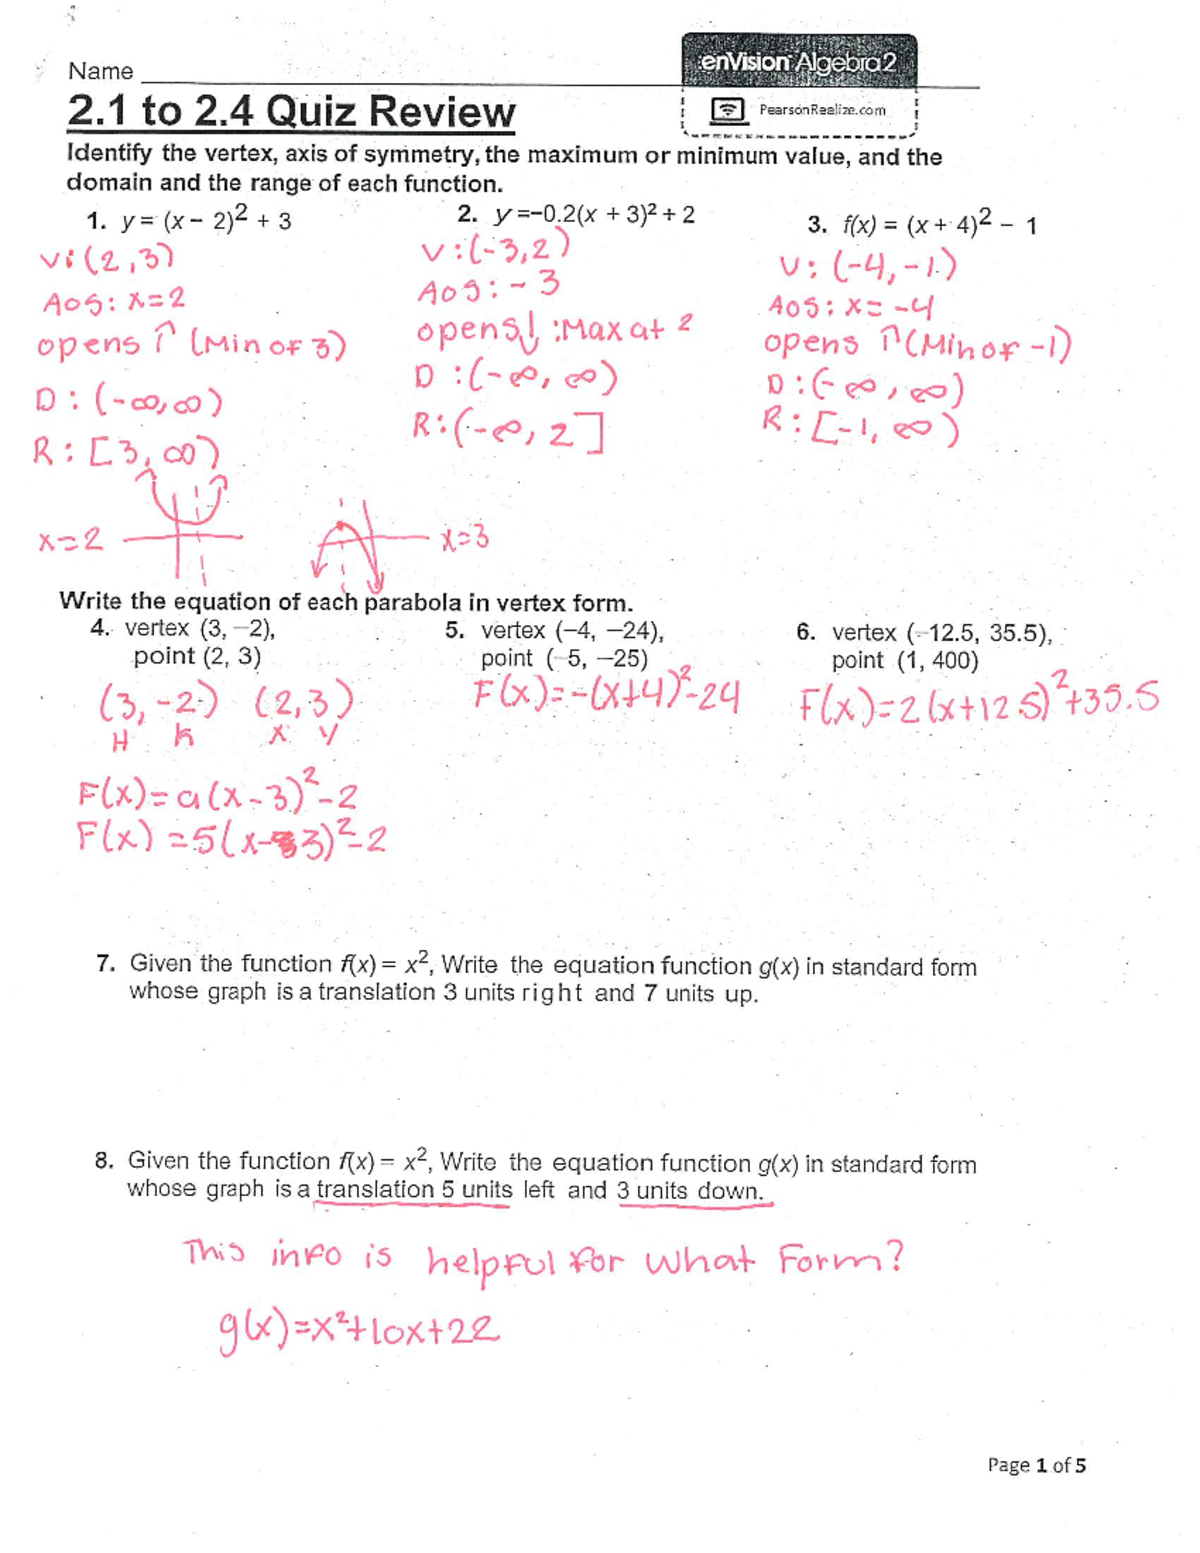 enVision Algebra2
Name
PearsonRealize.com
2.1 to 2.4 Quiz Review
Identify the vertex, axis of symmetry, the maximum or minimum value, and the
domain and the range of each function.
1. y = (x – 2)² + 3
V: (2,3)
AOS: x=2
opens ↑ (Min of 3)
D: (-∞,∞)
R: [3, ∞)
x=2
2. y=–0.2(x + 3)² + 2
V:(-3,2)
AOS: -3
opens↓ :Max at 2
D :(-∞, ∞)
R:(-∞, 2]
x=3
3. f(x) = (x + 4)² – 1
V: (-4, -1)
AOS: x= -4
opens ↑(Min of -1)
D:(-∞, ∞)
R: [-1, ∞)
Write the equation of each parabola in vertex form.
4. vertex (3, –2),
point (2, 3)
(3, -2) (2,3)
H k x y
F(x)=a(x-3)²-2
F(x) =5(x-3)²-2
5. vertex (–4, –24),
point (–5, –25)
F(x)=-(x+4)²-24
6. vertex (–12.5, 35.5),
point (1, 400)
F(x)=2(x+12.5)²+35.5
7. Given the function f(x) = x², Write the equation function g(x) in standard form
whose graph is a translation 3 units right and 7 units up.
8. Given the function f(x) = x², Write the equation function g(x) in standard form
whose graph is a translation 5 units left and 3 units down.
This info is helpful for what Form?
g(x)=x²+10x+22
Page 1 of 5